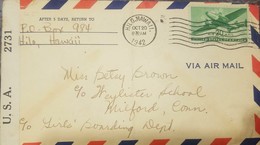 AFTER 5 DAYS, RETURN TO
P.O. Box 984
Hilo, Hawaii
HILO, HAWAII
OCT
1942
U.S.A. 2731
VIA AIR MAIL
Miss Betty Brown
c/o Weylister School
Milford, Conn.
c/o Girls' Boarding Dept.